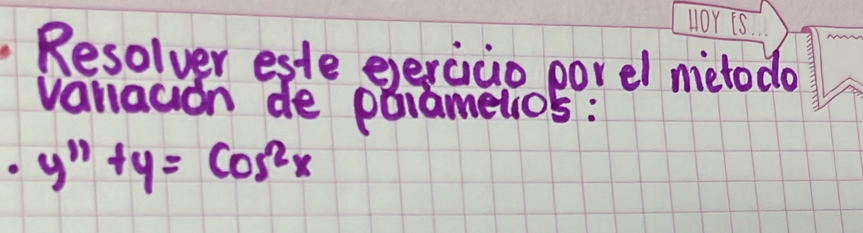 HOY ES...
• Resolver este ejercicio por el método
variación de parámetros:
• y'' + y = Cos²x